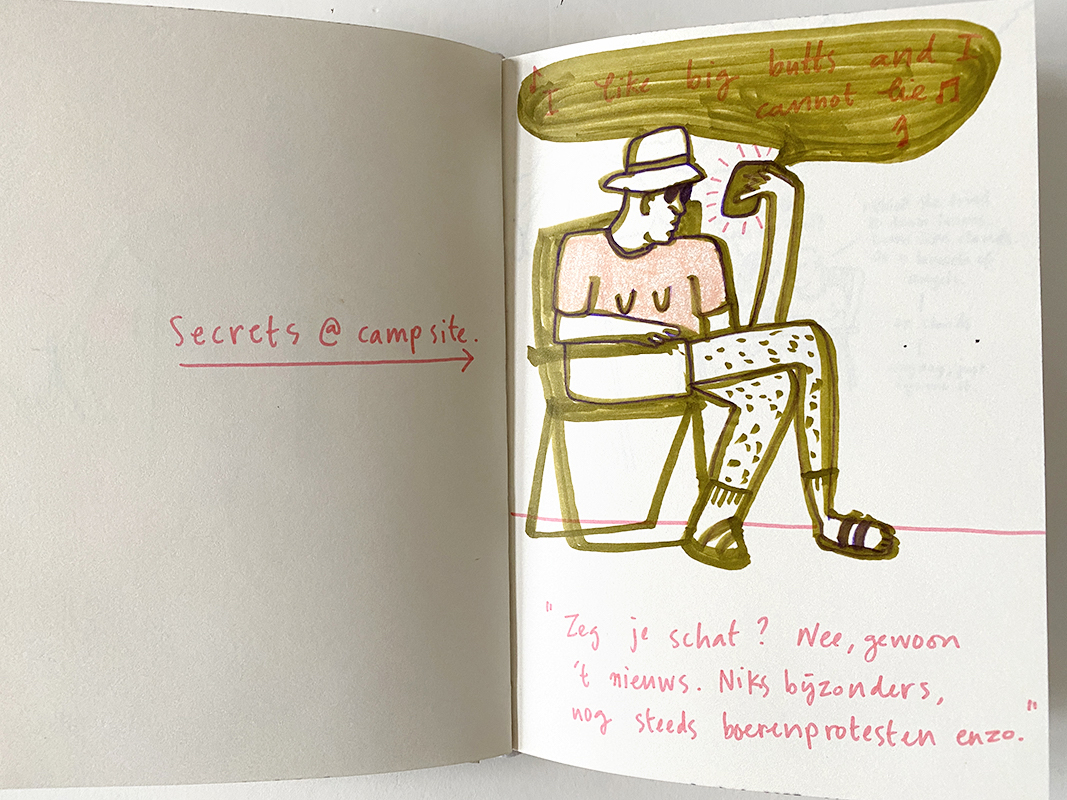 Secrets @ campsite.
I like big butts and I
cannot lie
"Zeg je schat? Nee, gewoon
't nieuws. Niks bijzonders,
nog steeds boerenprotesten enzo."